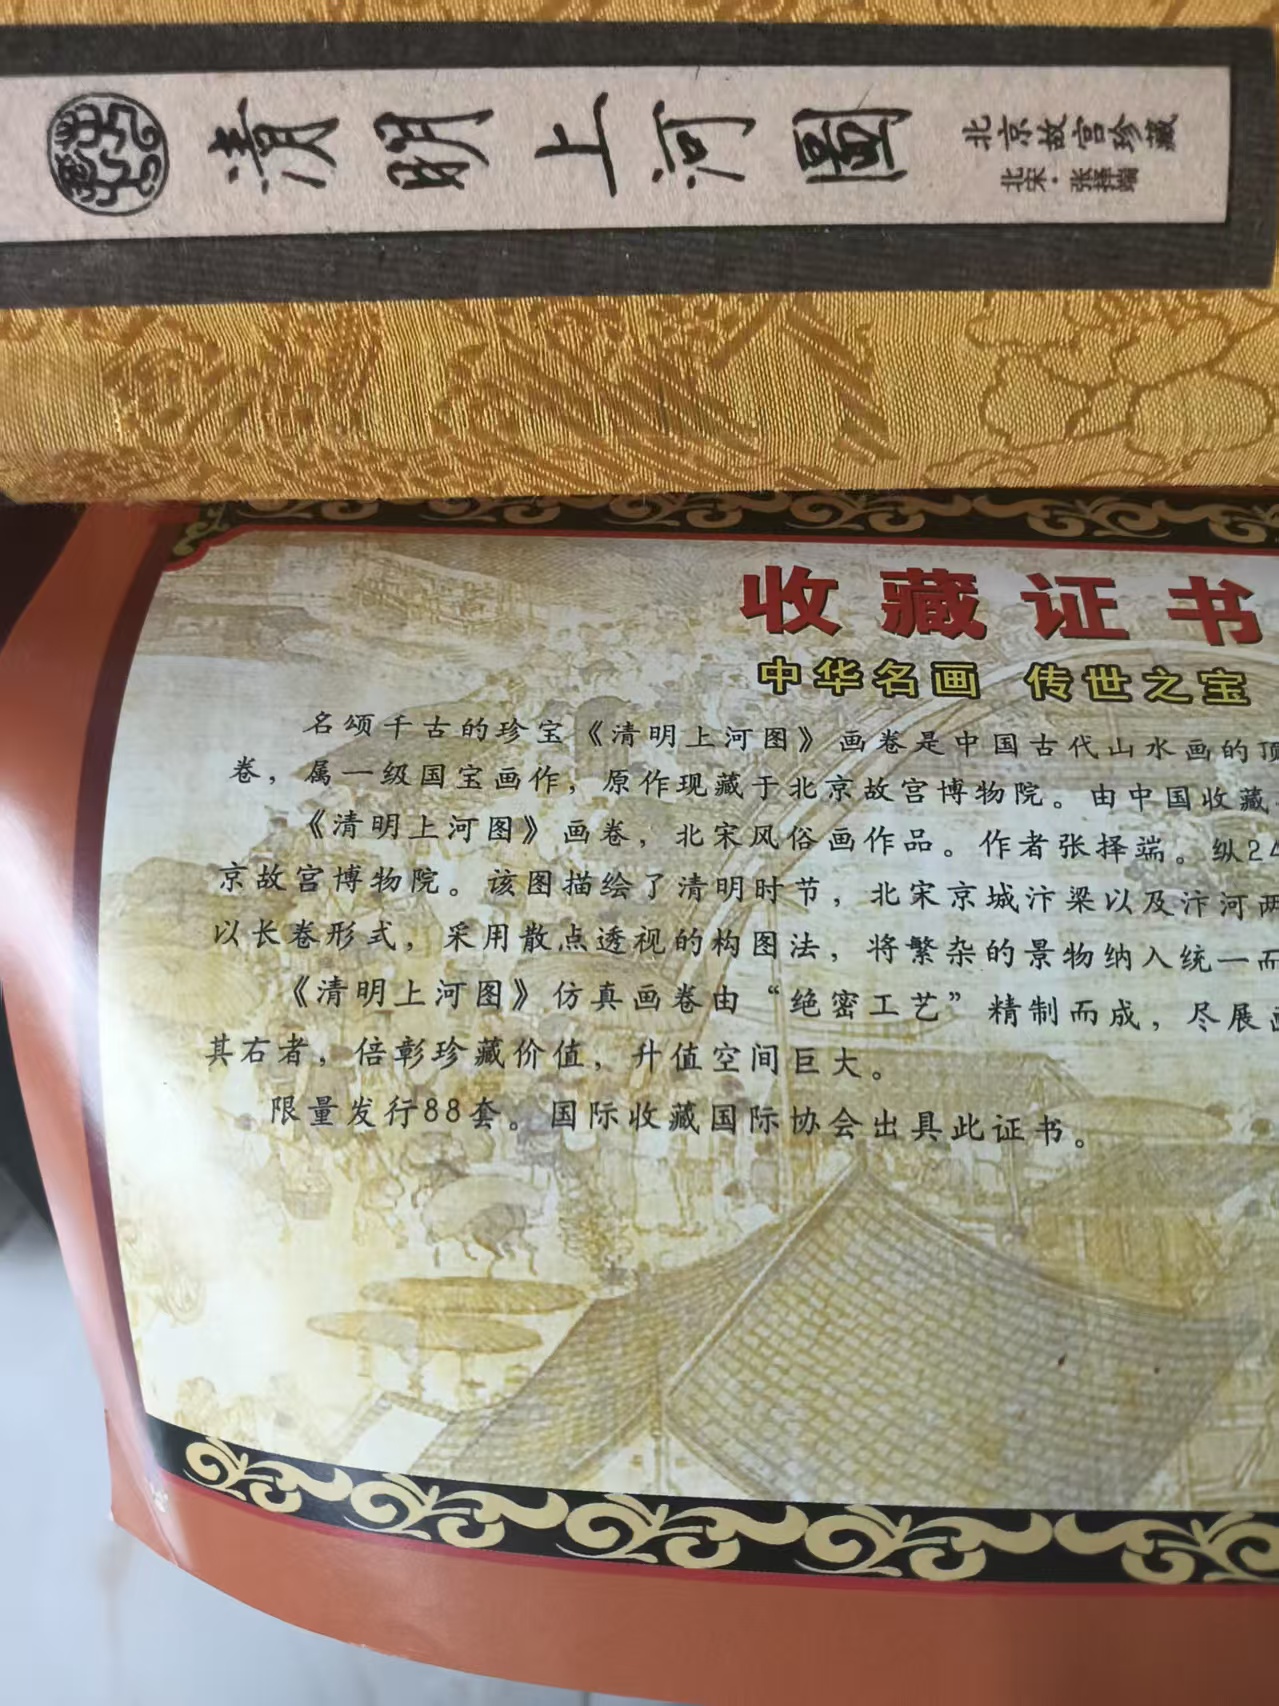 清明上河圖
北京故宫珍藏
北宋·张择端
收藏证书
中华名画 传世之宝
名颂千古的珍宝《清明上河图》画卷是中国古代山水画的顶
卷，属一级国宝画作，原作现藏于北京故宫博物院。由中国收藏
《清明上河图》画卷，北宋风俗画作品。作者张择端。纵24
京故宫博物院。该图描绘了清明时节，北宋京城汴梁以及汴河两
以长卷形式，采用散点透视的构图法，将繁杂的景物纳入统一而
《清明上河图》仿真画卷由“绝密工艺”精制而成，尽展画
其右者，倍彰珍藏价值，升值空间巨大。
限量发行88套。国际收藏国际协会出具此证书。